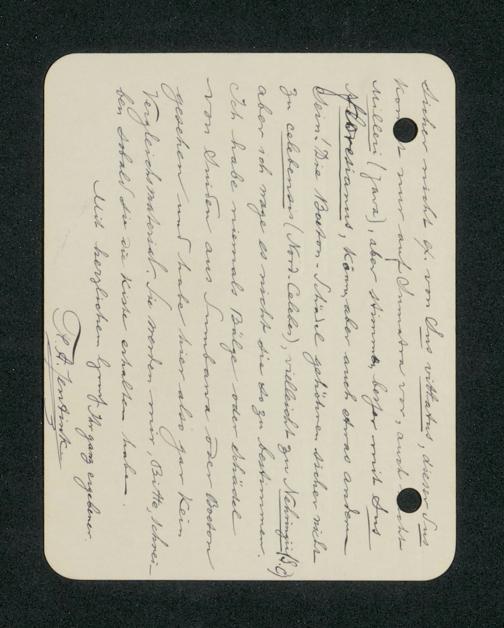 Sicher nicht ex. von Sus vittatus, dieser Sus
kommt nur auf Sumatra vor, auch nicht
Milleri (Java), aber stimmt besser mit Sus
floresianus, kann aber auch etwas anders
sein! Die Boeton-Schädel gehören sicher nicht
zu celebensis (Nord. Celebes), vielleicht zu Nehringii
aber ich wage es nicht die so zu bestimmen.
Ich habe niemals Bälge oder Schädel
von Suiden aus Sumbawa oder Boeton
gesehen und habe hier also gar kein
Vergleichsmaterial. Sie werden mir, Bitte, schrei-
ben sobald Sie die Kiste erhalten haben.
Mit herzlichem Gruß Ihr ganz ergebener
F. A. Jentink